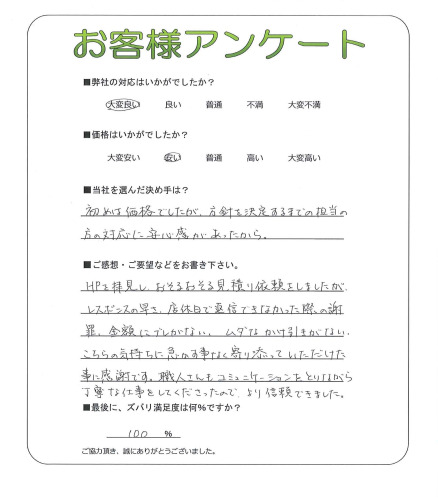 お客様アンケート
■弊社の対応はいかがでしたか?
大変良い 良い 普通 不満 大変不満
■価格はいかがでしたか?
大変安い 安い 普通 高い 大変高い
■当社を選んだ決め手は?
初めは価格でしたが、方針を決定するまでの担当の
方の対応に安心感があったから。
■ご感想・ご要望などをお書き下さい。
HPを拝見し、おそるおそる見積り依頼をしましたが、
レスポンスの早さ、店休日で返信できなかった際の謝
罪、金額にブレがない、ムダなかけ引きがない、
こちらの気持ちに急かす事なく寄り添っていただけた
事に感謝です。職人さんもコミュニケーションをとりながら
丁寧な仕事をしてくださったので、より信頼できました。
■最後に、ズバリ満足度は何%ですか?
100 %
ご協力頂き、誠にありがとうございました。